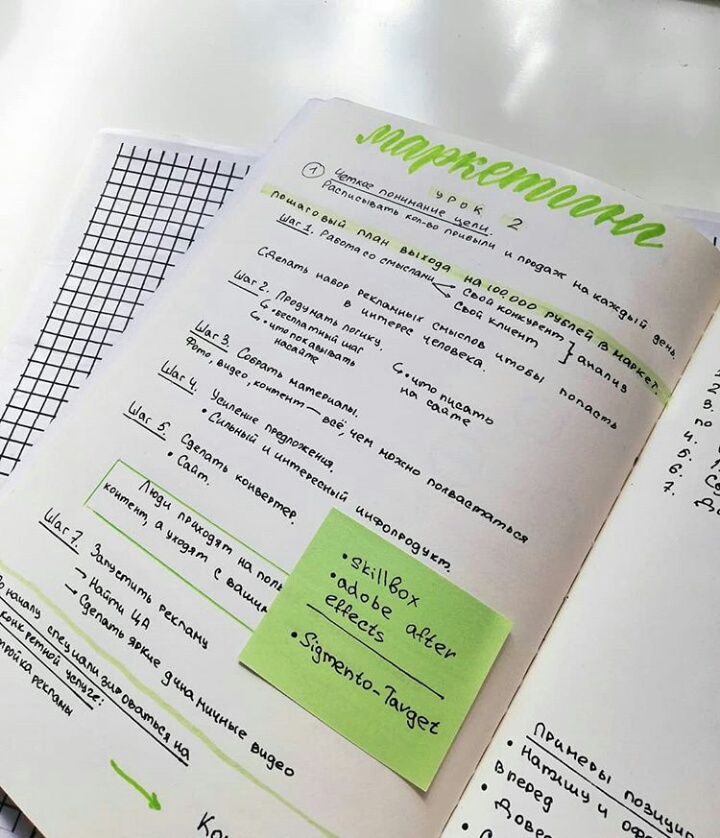 маркетинг
урок 2
① Четкое понимание цели.
Расписывать кол-во прибыли и продаж на каждый день.
пошаговый план выхода на 100.000 рублей в маркет.
Шаг 1. Работа со смыслами
Свой конкурент
Свой клиент
} анализ
Сделать набор рекламных смыслов чтобы попасть
в интерес человека.
Шаг 2. Продумать логику.
↳ •бесплатный шаг
↳ •что показывать
на сайте
↳ •что писать
на сайте
Шаг 3. Собрать материалы.
Фото, видео, контент — всё, чем можно полвастаться
Шаг 4. Усиление предложения.
• Сильный и интересный инфопродукт.
Шаг 5. Сделать конвертер.
• Сайт.
Люди приходят на
контент, а уходят с
Шаг 7. Запустить рекламу
→ Найти ЦА
→ Сделать яркие динамичные видео
началу специализироваться на
конкретной услуге:
рекламы
• skillbox
• adobe after
effects
• Sigmento-Target
2
3.
по
4.
5.
6.
7.
Примеры
• Напишу и
вперед
•